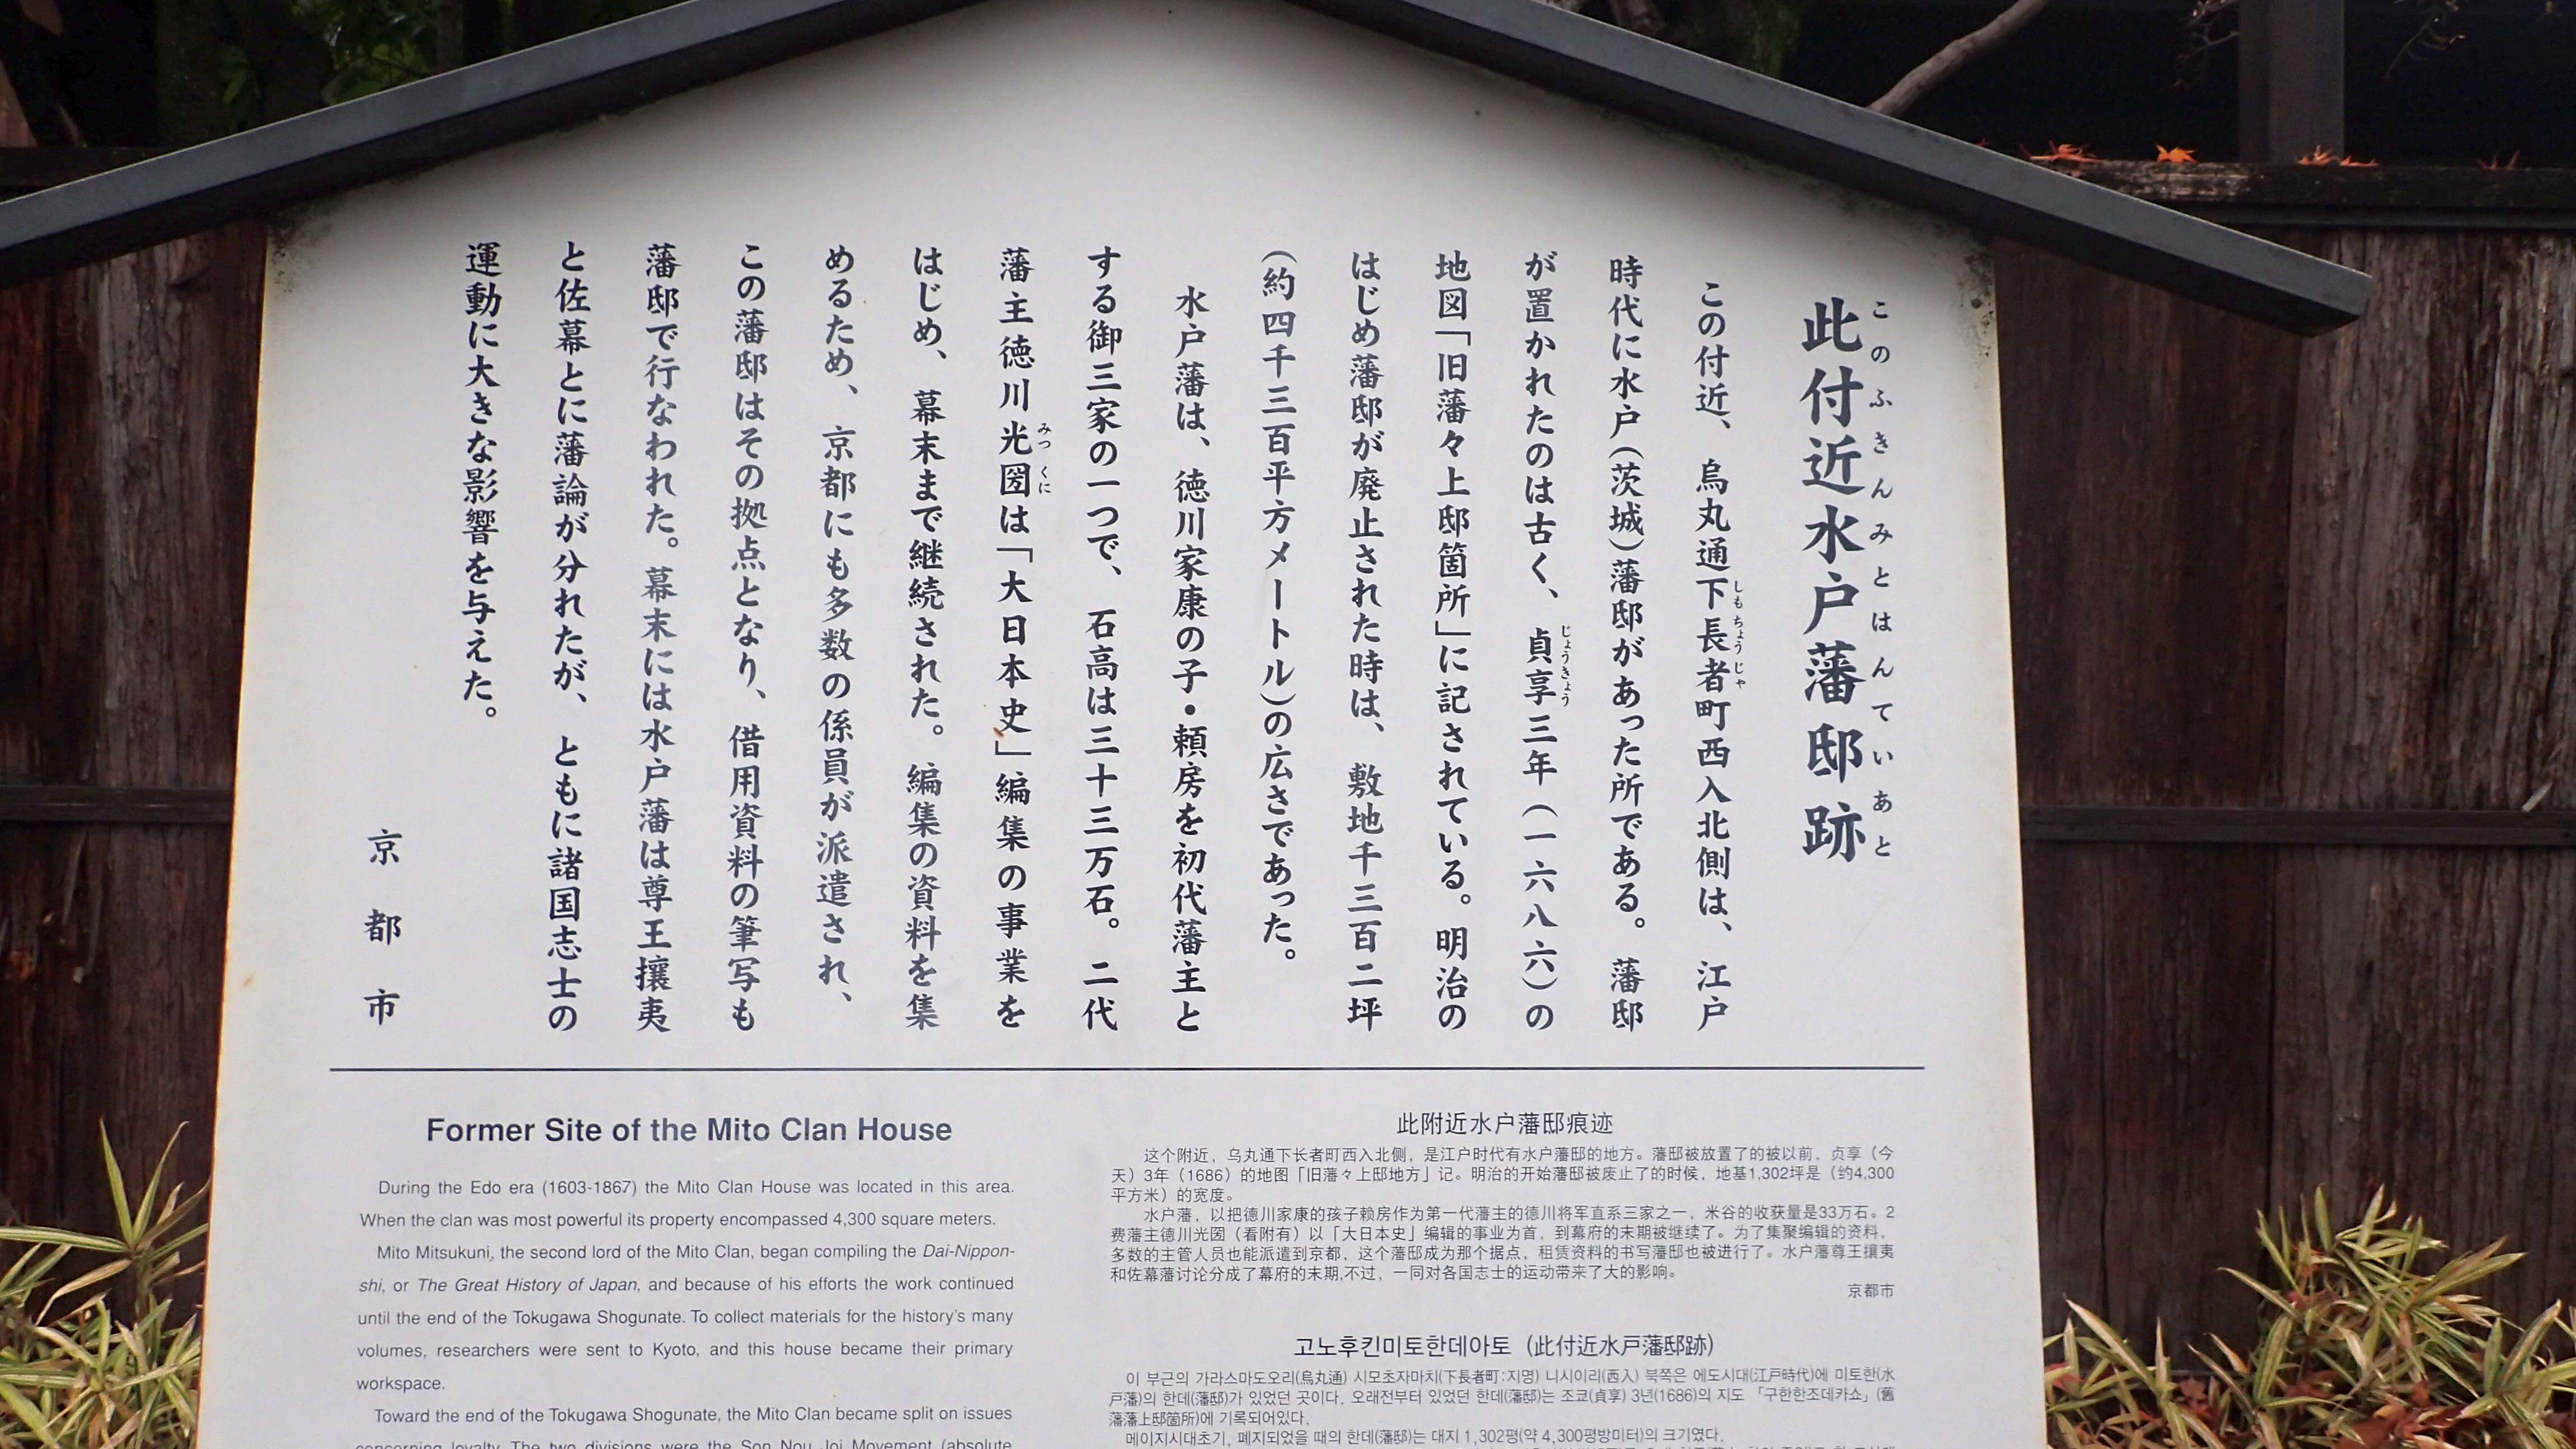 此付近水戸藩邸跡
このふきんみとはんていあと
この付近、烏丸通下長者町西入北側は、江戸
しもちょうじゃ
時代に水戸(茨城)藩邸があった所である。藩邸
が置かれたのは古く、貞享三年(一六八六)の
じょうきょう
地図「旧藩々上邸箇所」に記されている。明治の
はじめ藩邸が廃止された時は、敷地千三百二坪
(約四千三百平方メートル)の広さであった。
水戸藩は、徳川家康の子・頼房を初代藩主と
する御三家の一つで、石高は三十三万石。二代
藩主徳川光圀は「大日本史」編集の事業を
みつくに
はじめ、幕末まで継続された。編集の資料を集
めるため、京都にも多数の係員が派遣され、
この藩邸はその拠点となり、借用資料の筆写も
藩邸で行なわれた。幕末には水戸藩は尊王攘夷
と佐幕とに藩論が分れたが、ともに諸国志士の
運動に大きな影響を与えた。
京都市
Former Site of the Mito Clan House
During the Edo era (1603-1867) the Mito Clan House was located in this area.
When the clan was most powerful its property encompassed 4,300 square meters.
Mito Mitsukuni, the second lord of the Mito Clan, began compiling the Dai-Nippon-
shi, or The Great History of Japan, and because of his efforts the work continued
until the end of the Tokugawa Shogunate. To collect materials for the history's many
volumes, researchers were sent to Kyoto, and this house became their primary
workspace.
Toward the end of the Tokugawa Shogunate, the Mito Clan became split on issues
concerning loyalty. The two divisions were the Son Nou Joi Movement (absolute
此附近水户藩邸痕迹
这个附近，乌丸通下长者町西入北侧，是江户时代有水户藩邸的地方。藩邸被放置了的被以前，贞享（今
天）3年（1686）的地图「旧藩々上邸地方」记。明治的开始藩邸被废止了的时候，地基1,302坪是（约4,300
平方米）的宽度。
水户藩，以把德川家康的孩子赖房作为第一代藩主的德川将军直系三家之一，米谷的收获量是33万石。2
费藩主德川光圀（看附有）以「大日本史」编辑的事业为首，到幕府的末期被继续了。为了集聚编辑的资料，
多数的主管人员也能派遣到京都，这个藩邸成为那个据点，租赁资料的书写藩邸也被进行了。水户藩尊王攘夷
和佐幕藩讨论分成了幕府的末期,不过，一同对各国志士的运动带来了大的影响。
京都市
고노후킨미토한데아토 (此付近水戸藩邸跡)
이 부근의 가라스마도오리(烏丸通) 시모초자마치(下長者町:지명) 니시이리(西入) 북쪽은 에도시대(江戸時代)에 미토한(水
戸藩)의 한데(藩邸)가 있었던 곳이다. 오래전부터 있었던 한데(藩邸)는 조쿄(貞享) 3년(1686)의 지도 「구한한조데카쇼」(舊
藩藩上邸箇所)에 기록되어있다.
메이지시대초기, 폐지되었을 때의 한데(藩邸)는 대지 1,302평(약 4,300평방미터)의 크기였다.